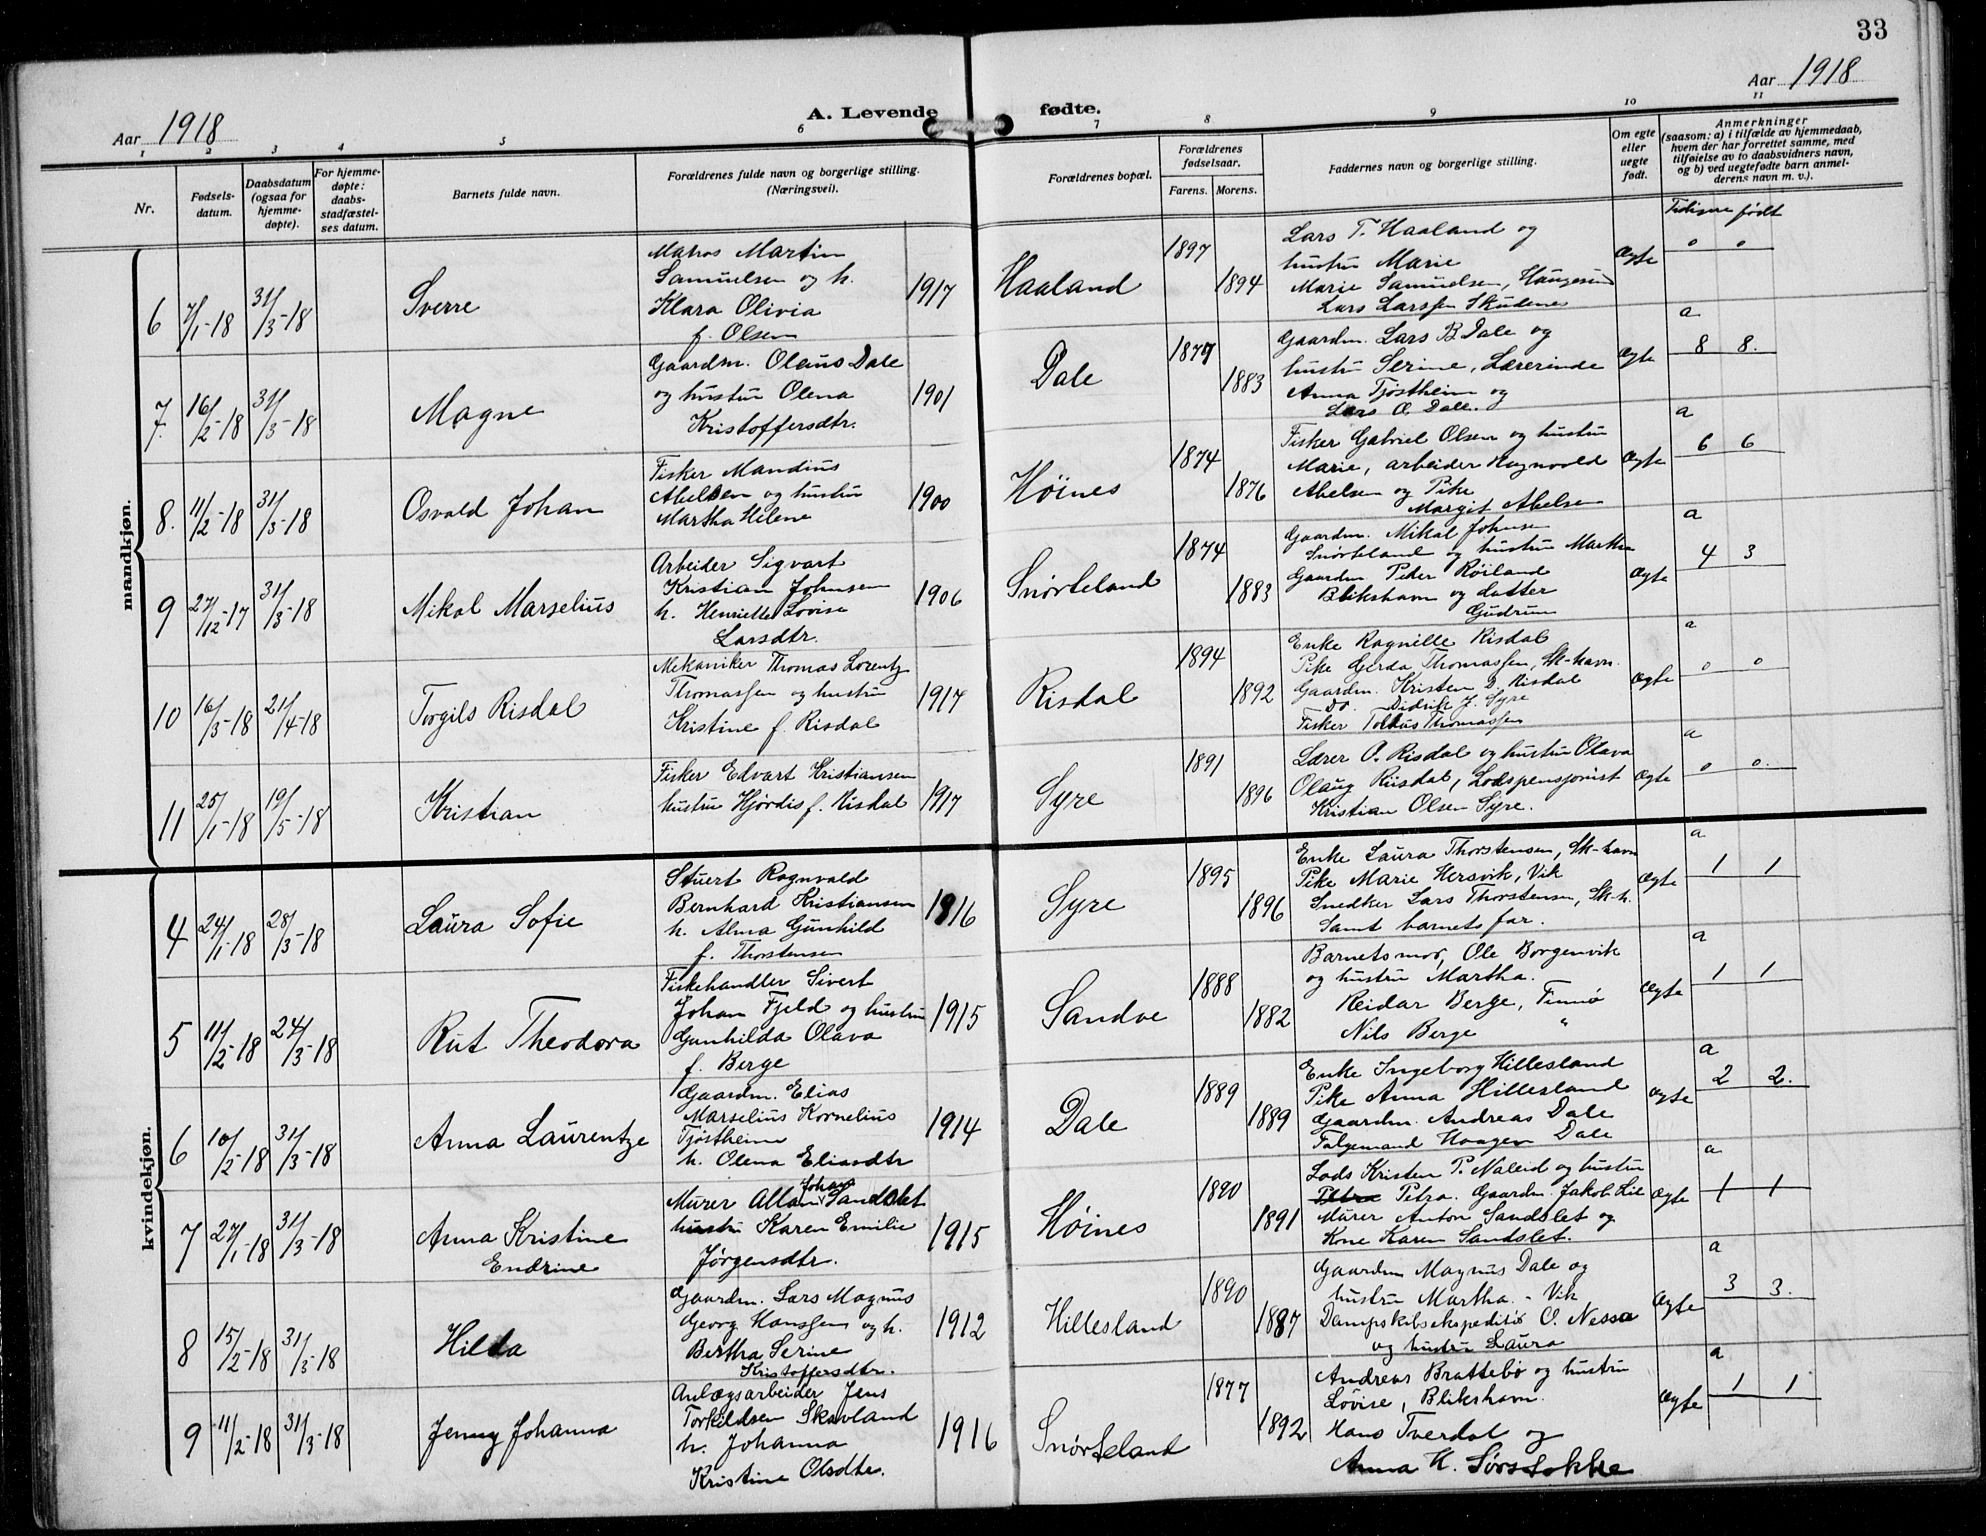 33
Aar 1918
A. Levende fødte.
Aar 1918
1 2 3 4 5 6 7 8 9 10 11
Nr.
Fødsels-
datum.
Daabsdatum
(ogsaa for
hjemme-
døpte).
For hjemme-
døpte:
daabs-
stadfæstel-
ses datum.
Barnets fulde navn.
Forældrenes fulde navn og borgerlige stilling.
(Næringsvei).
Forældrenes bopæl.
Forældrenes
fødselsaar.
Farens. Morens.
Faddernes navn og borgerlige stilling.
Om egte
eller
uegte
født.
Anmerkninger
(saasom: a) i tilfælde av hjemmedaab,
hvem der har forrettet samme, med
tilføielse av to daabsvidners navn,
og b) ved uegtefødte barn anmel-
derens navn m. v.).
Tidligere født
mandkjøn.
6 7/1-18 31/3-18 Sverre
Matros Martin
Samuelsen og h.
Klara Olivia
f. Olsen
1917 Haaland 1897 1894
Lars T. Haaland og
hustru Marie
Marie Samuelsen, Haugesund
Lars Larssen Skudene
Ægte 0 0
7. 16/2-18 31/3-18 Magne
Gaardm. Olaus Dale
og hustru Olena
Kristoffersdtr.
1901 Dale 1877 1883
Gaardm. Lars B. Dale og
hustru Serine, Lærerinde
Anna Tjøstheim og
Lars O. Dale.
Ægte a 8 8.
8. 11/2-18 31/3-18 Osvald Johan
Fisker Mandius
Abelsen og hustru
Martha Helene
1900 Høines 1874 1876
Fisker Gabriel Olsen og hustru
Marie, arbeider Ragnvald
Abelsen og Pike
Margit Abelsen
Ægte a 6 6
9 27/12-17 31/3-18 Mikal Marselius
Arbeider Sigvart
Kristian Johnsen
h. Henriette Lovise
Larsdtr.
1906 Snørteland 1874 1883
Gaardm. Mikal Johnsen
Snørteland og hustru Martha
Gaardm Peter Røiland
Blikshavn og datter
Gudrun
Ægte a 4 3
10 16/3-18 21/4-18 Torgils Risdal
Mekaniker Thomas Lorentz
Thomassen og hustru
Kristine f. Risdal
1917 Risdal 1894 1892
Enke Ragnille Risdal
Pike Gerda Thomassen, Sk-havn.
Gaardm. Kristen D. Risdal
Do. Didrik J. Syre
Fisker Thomassen
Ægte a 0 0
11 25/1-18 19/5-18 Kristian
Fisker Edvart Kristiansen
hustru Hjørdis f. Risdal
1917 Syre 1891 1896
Lærer O. Risdal og hustru Olava
Olaug Risdal, Lodspensjonist
Kristian Olsen Syre.
Ægte a 0 0.
kvindekjøn.
4 24/1-18 28/3-18 Laura Sofie
Stuert Ragnvald
Bernhard Kristiansen
h. Alma Gunhild
f. Thorstensen
1916 Syre 1895 1896
Enke Laura Thorstensen, Sk-havn
Pike Marie Hersvik, Vik
Snedker Lars Thorstensen, Sk-h.
Samt barnets far.
Ægte a 1 1
5 11/2-18 24/3-18 Rut Theodora
Fiskehandler Sivert
Johan Fjeld og hustru
Gunhilda Olava
f. Berge
1915 Sandve 1888 1882
Barnets mor, Ole Borgenvik
og hustru Martha.
Reidar Berge, Finnø
Nils Berge "
Ægte a 1 1
6 10/2-18 31/3-18 Anna Laurentze
Gaardm. Elias
Marselius Kornelius
Tjøstheim
h. Olena Eliasdtr
1914 Dale 1889 1889
Enke Ingeborg Hillesland
Pike Anna Hillesland
Gaardm. Andreas Dale
Følgemand Haagen Dale
Ægte a 2 2.
7 27/1-18 31/3-18 Anna Kristine
Endrine
Murer Allan Johan Sandslet
hustru Karen Emilie
Jørgensdtr.
1915 Høines 1890 1891
Lods Kristen P. Naleid og hustru
Petra Petra. Gaardm. Jakob Lie
Murer Anton Sandslet og
Kone Karen Sandslet.
Ægte a 1 1
8 15/2-18 31/3-18 Hilda
Gaardm. Lars Magnus
Georg Hanssen og h.
Bertha Serine
Kristoffersdtr.
1912 Hillesland 1890 1887
Gaardm Magnus Dale og
hustru Martha. - Vik
Dampskibsekspeditør O. Nessa
og hustru Laura
Ægte a 3 3.
9 11/2-18 31/3-18 Jenny Johanna
Anlægsarbeider Jens
Torkildsen Skavland
h. Johanna
Kristine Olsdtr.
1916 Snørteland 1877 1892
Andreas Brattebø og hustru
Lovise, Blikshavn.
Hans Tverdal og
Anna K. Sørstokke
Ægte a 1 1